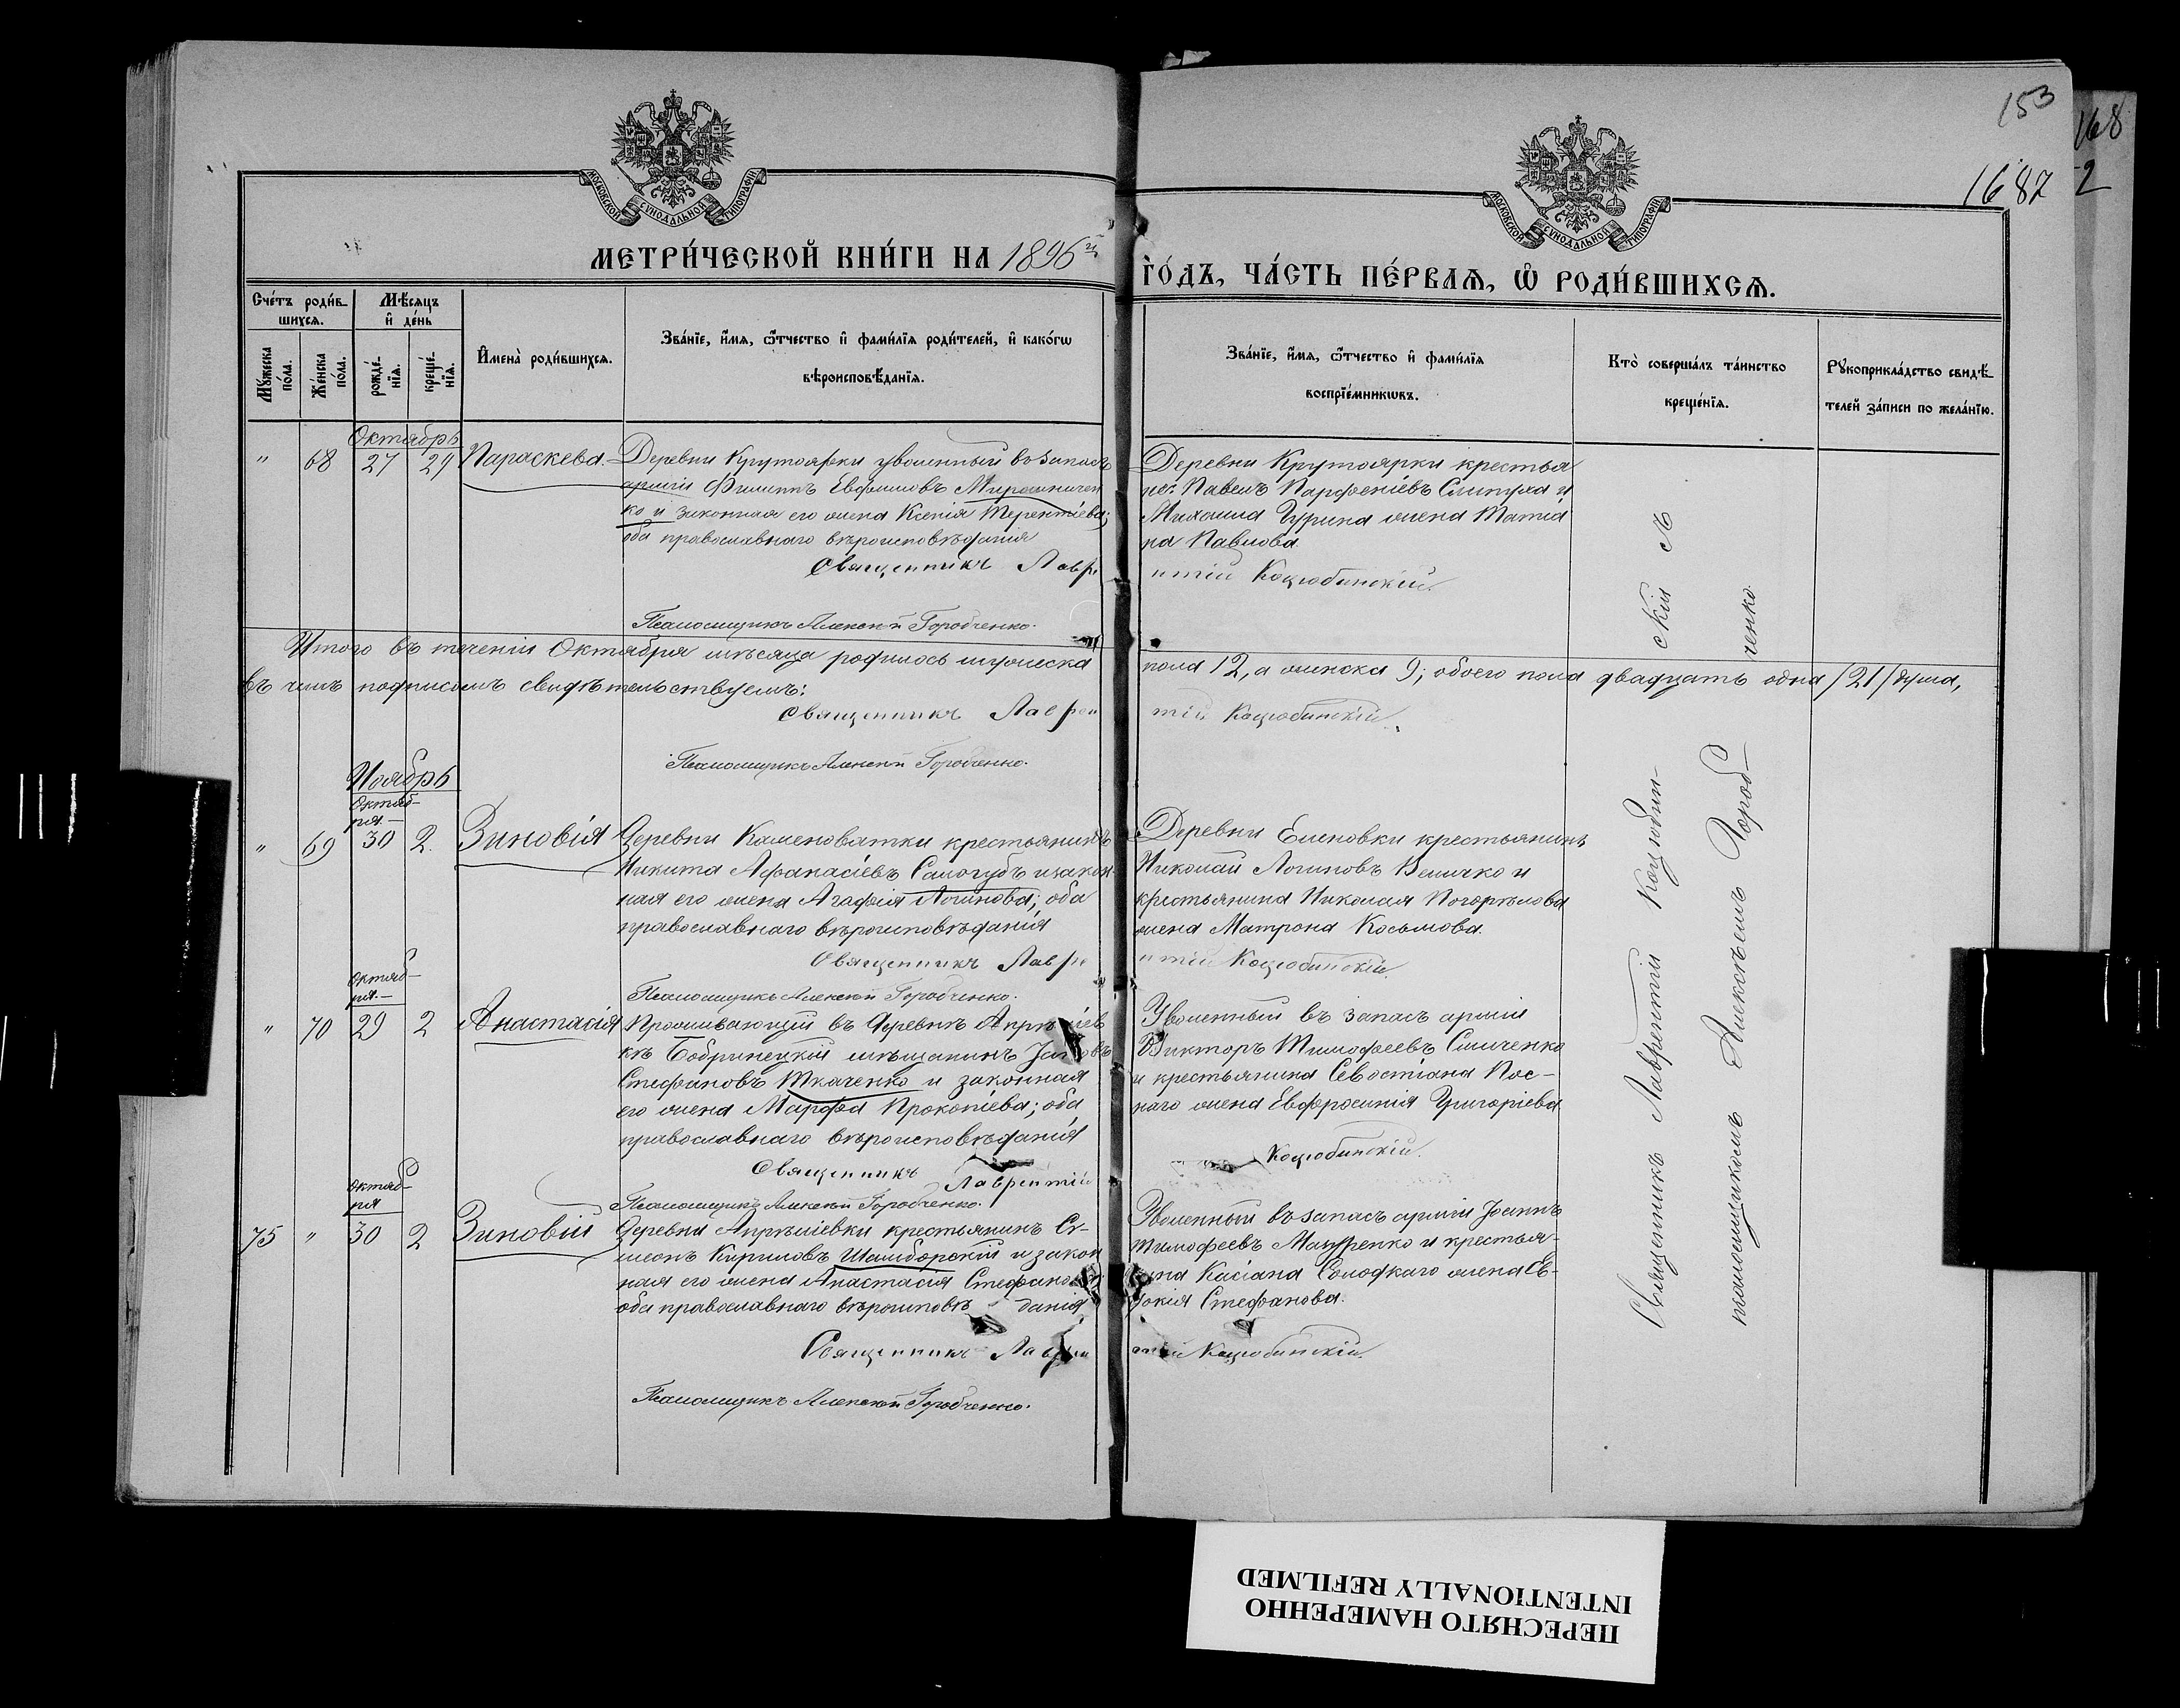 153
168
1687 2
МОСКОВСКОЙ СѴНОДАЛЬНОЙ ТИПОГРАФІИ
МОСКОВСКОЙ СѴНОДАЛЬНОЙ ТИПОГРАФІИ
МЕТРИ́ЧЕСКОЙ КНИ́ГИ НА 1896й
ГО́ДЪ, ЧА́СТЬ ПЕ́РВАЯ, Ѡ РОДИ́ВШИХСЯ.
Сче́тъ роди́в-
шихся.
Мѣ́сяцъ
и де́нь
Му́жеска по́ла.
Же́нска по́ла.
рожде́-
нія.
креще́-
нія.
Имена̀ роди́вшихся.
Зва́ніе, и́мя, ѻ́тчество и фами́лія роди́телей, и како́гѡ
вѣроисповѣ́данія.
Зва́ніе, и́мя, ѻ́тчество и фами́лія
воспріе́мникѡвъ.
Кто̀ соверша́лъ та́инство
креще́нія.
Рꙋкоприкла́дство свидѣ́-
телей за́писи по жела́нію.
Октябрь
" 68 27 29 Параскева. Деревни Крутоярки уволенный въ запасъ
арміи Филиппъ Евфимовъ Мирошничен
ко и законная его жена Ксенія Терентіева;
оба православнаго вѣроисповѣданія
Священникъ Лавре
Псаломщикъ Алексѣй Городченко.
Деревни Крутоярки крестья
Павелъ Парфеніевъ Слипуха и
Михаила Гурина жена Матіа
на Павлова.
нтій Коцюбинскій.
Итого въ теченіи Октября мѣсяца родилось мужеска
пола 12, а женска 9; обоего пола двадцать одна /21/ душа,
въ чемъ подписомъ свидѣтельствуемъ:
Священникъ Лаврен
тій Коцюбинскій.
Псаломщикъ Алексѣй Городченко.
Ноябрь
Октяб-
ря.-
" 69 30 2. Зиновія Деревни Каменоватки крестьянинъ
Никита Афанасіевъ Самогубъ и закон-
ная его жена Агафія Логинова; оба
православнаго вѣроисповѣданія
Священникъ Лавре
Псаломщикъ Алексѣй Городченко.
Деревни Еленовки крестьянинъ
Николай Логиновъ Величко и
крестьянина Николая Погорѣлова
жена Матрона Косьмова.
нтій Коцюбинскій.
Октяб-
ря.-
" 70 29 2 Анастасія Проживающій въ деревнѣ
кѣ Бобринецкій мѣщанинъ
Стефановъ Ткаченко и законная
его жена Марфа Прокопіева; оба
православнаго вѣроисповѣданія
Священникъ Лаврентій
Псаломщикъ Алексѣй Городченко.
Уволенный въ запасъ арміи
Викторъ Тимофеевъ Симченко
и крестьянина Севостіана Пос-
наго жена Евфросинія Григоріева
Коцюбинскій.
Октяб-
ря
75 " 30 2 Зиновій Деревни Апрѣліевки крестьянинъ Си-
меонъ Кириловъ Шамборскій и закон
ная его жена Анастасія Стефанова
оба православнаго вѣроисповѣ-данія
Священникъ Лаврен
Псаломщикъ Алексѣй Городченко.
Уволенный въ запасъ арміи Іоаннъ
Тимофеевъ Мазуренко и крестья-
нина Касіана Солодкаго жена Ев-
докія Стефанова.
нтій Коцюбинскій.
Священникъ Лаврентій Коцюбин-скій съ
псаломщикомъ Алексѣемъ Город-ченко
ПЕРЕСНЯТО НАМЕРЕННО
INTENTIONALLY REFILMED